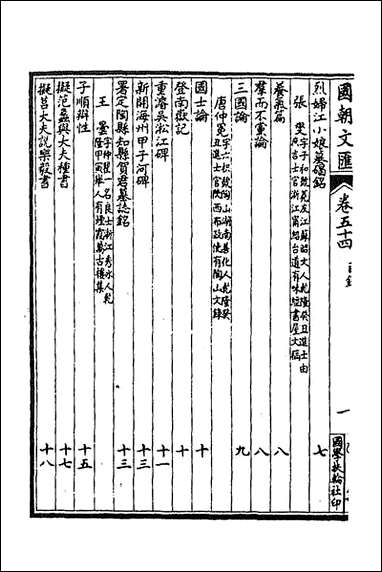 國朝文匯 卷五十四 目錄 一
國學扶輪社印
烈婦江小娘墓碣銘 七
張燮 字子和號蕘友江蘇昭文人乾隆癸丑進士由庶吉士官浙江甯紹台道有味經書屋文稿
養氣篇 八
羣而不黨論 八
三國論 九
唐仲冕 字六枳號陶山湖南善化人乾隆癸丑進士官陝西布政使有陶山文錄
國士論 十
登南嶽記 十
重濬吳淞江碑 十一
新開海州甲子河碑 十三
署定陶縣知縣賀君墓誌銘 十三
王曇 字仲瞿一名良士浙江秀水人乾隆甲寅舉人有煙霞萬古樓集
子順辯性 十五
擬范蠡與大夫種書 十七
擬莒大夫說樂毅書 十八